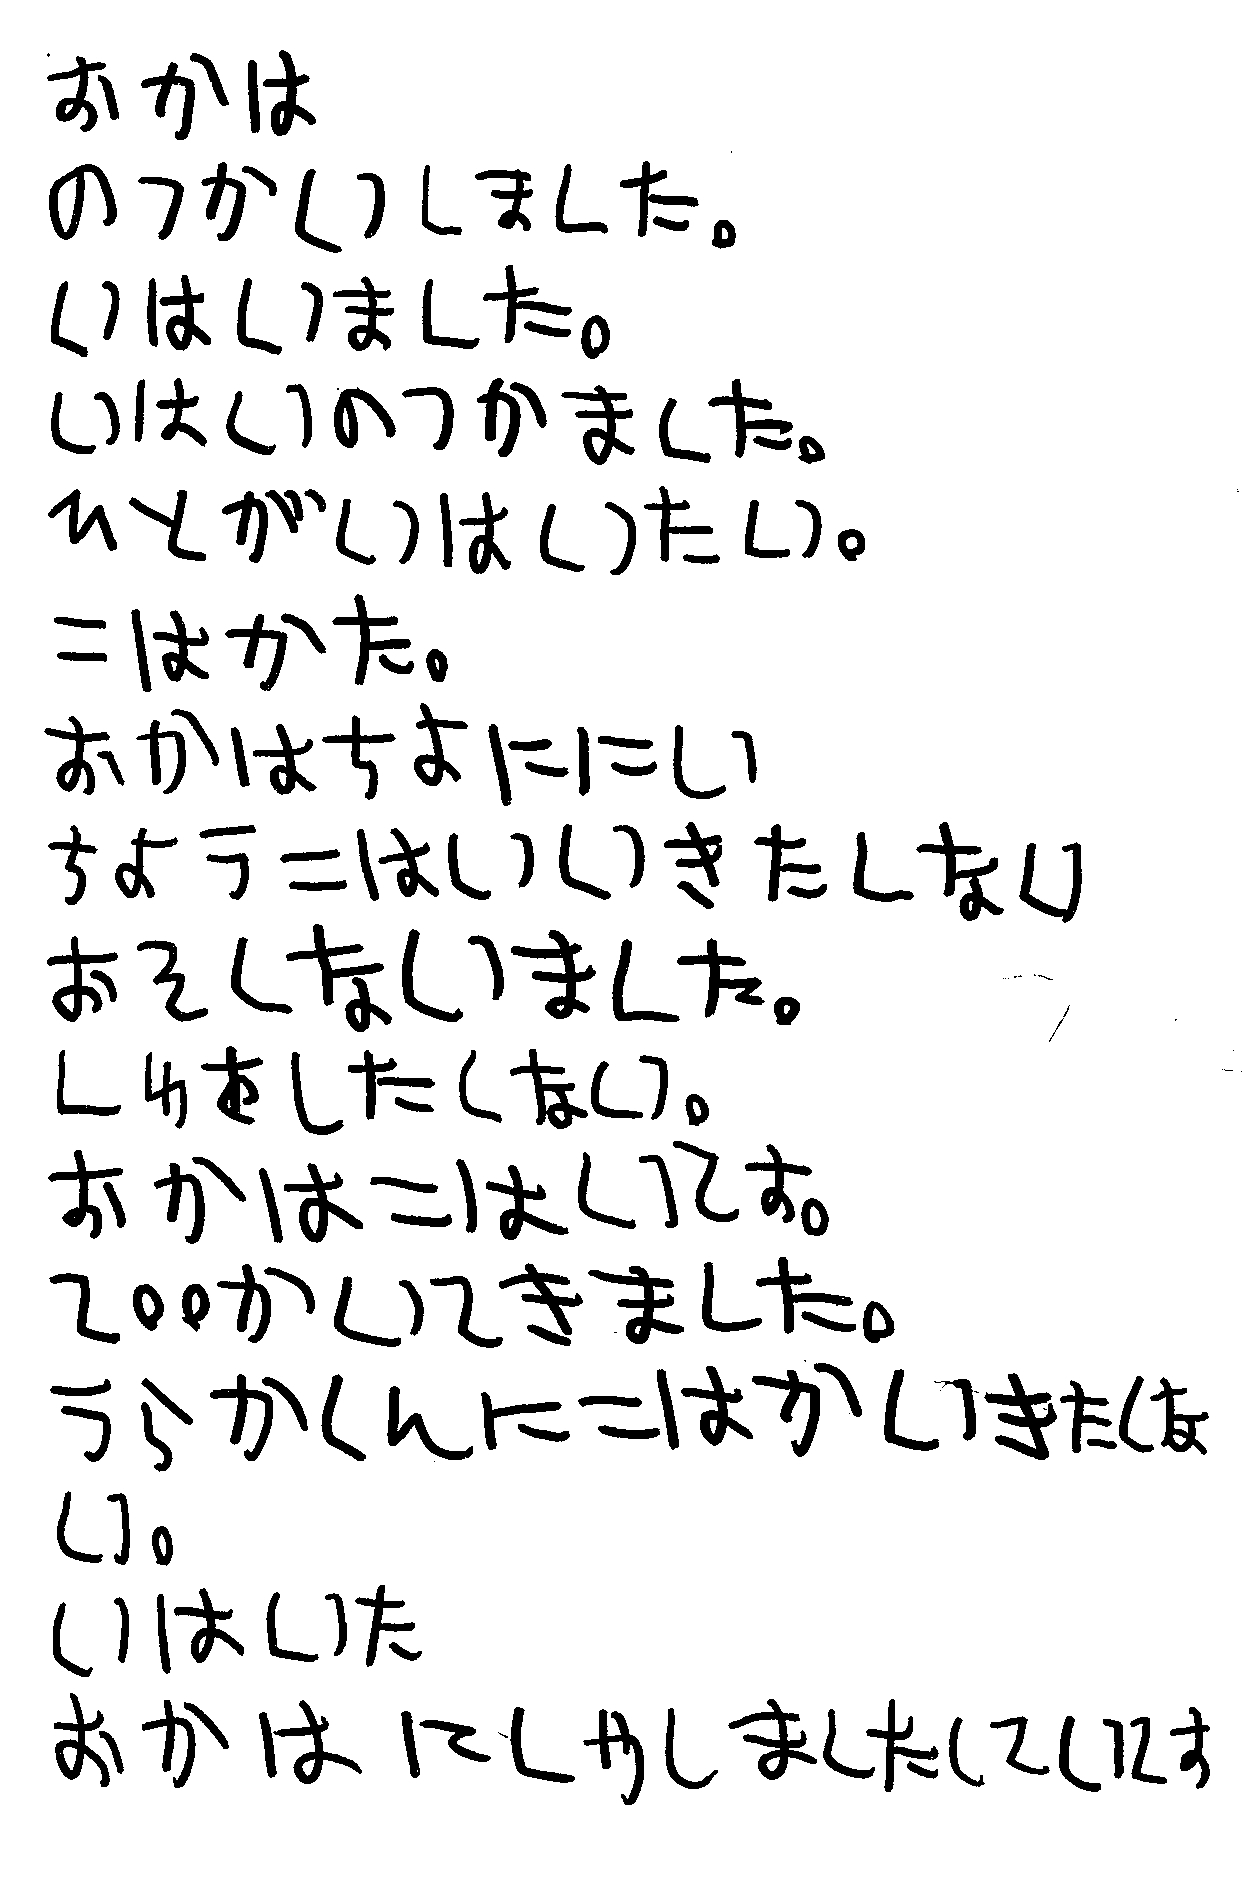 おかは
のつかいしました。
いはいました。
いはいのつかました。
ひとがいはいたい。
こはかた。
おかはちよににい
ちようこはいいきたしない
おそしないました。
しゆをしたくない。
おかはこはいてす。
てooかいてきました。
うらかくんにこはかいきたくな
い。
いはいた
おかはにしやしましたくてい